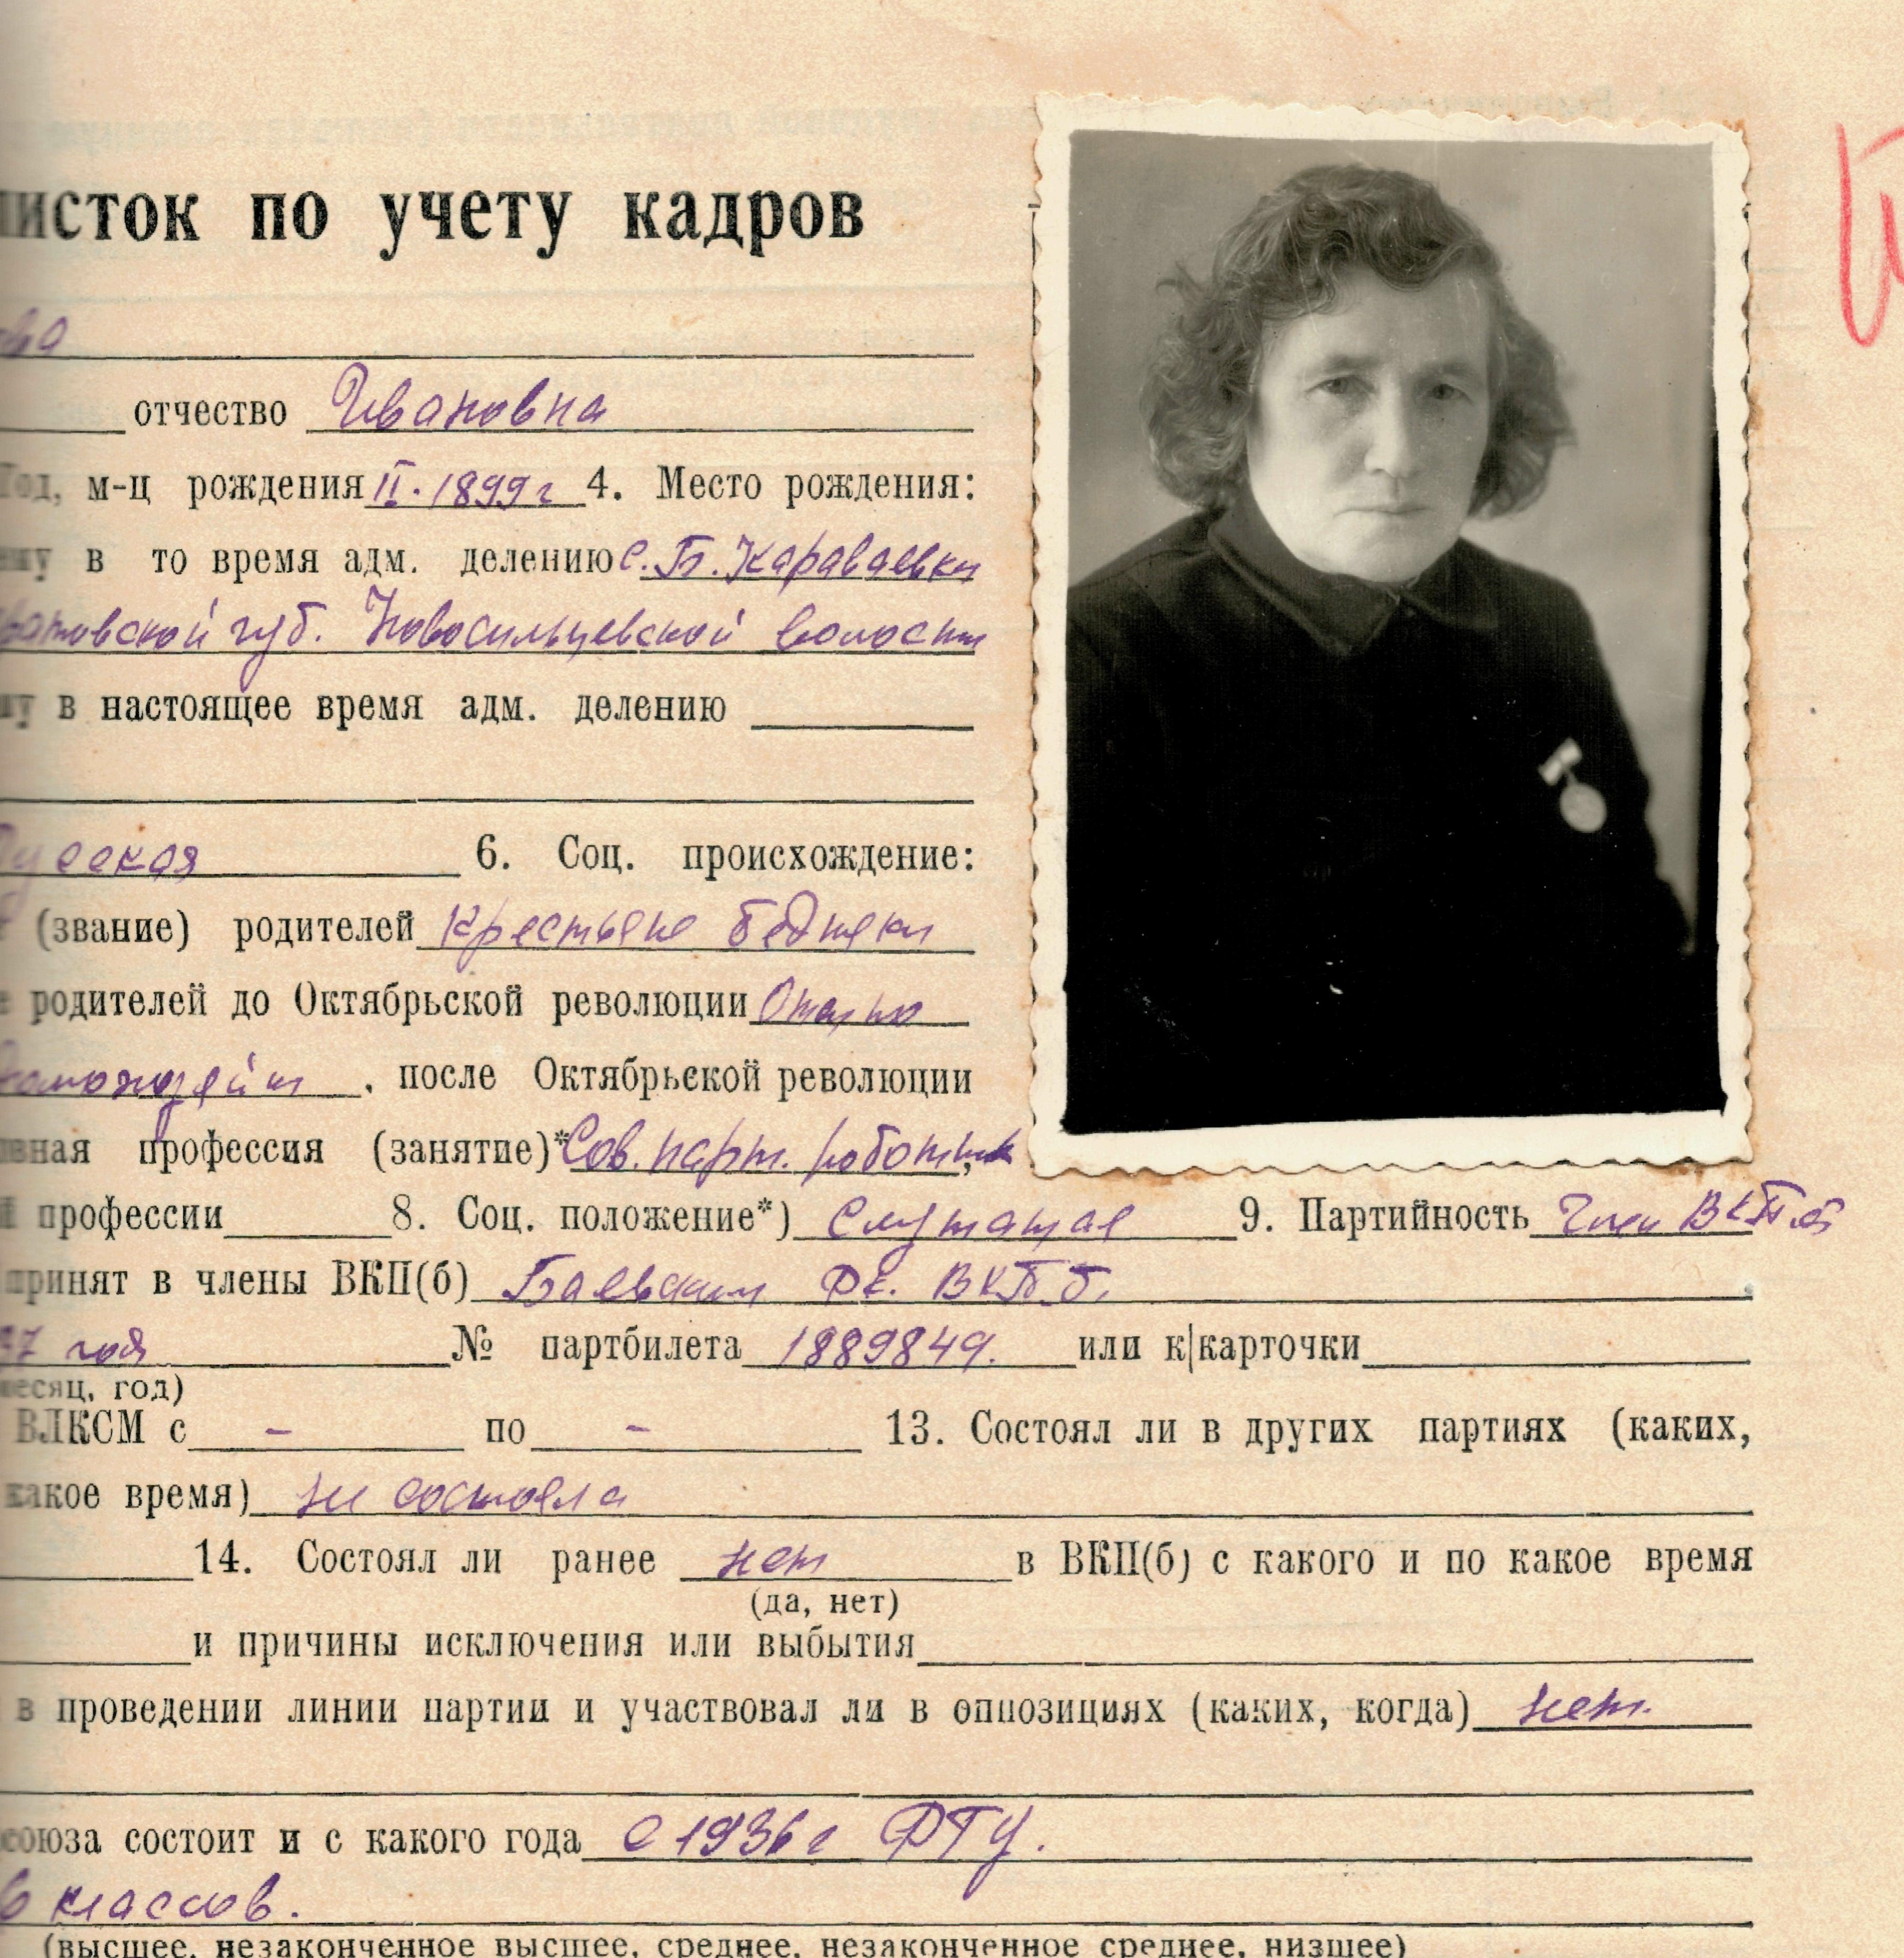 листок по учету кадров
ва
отчество Ивановна
Год, м-ц рождения II.1899г 4. Место рождения:
ему в то время адм. делению с. Б. Караваевки
губ. Новосильцевской волости
му в настоящее время адм. делению
Русская 6. Соц. происхождение:
(звание) родителей крестьяне бедняки
е родителей до Октябрьской революции
домохозяйки, после Октябрьской революции
вная профессия (занятие)* Сов. парт. работник,
й профессии 8. Соц. положение*) Служащая 9. Партийность Член ВКП.б
принят в члены ВКП(б) Баевским РК. ВКП.б.
37 год № партбилета 1889849. или к|карточки
месяц, год)
ВЛКСМ с - по - 13. Состоял ли в других партиях (каких,
какое время) не состояла
14. Состоял ли ранее нет в ВКП(б) с какого и по какое время
(да, нет)
и причины исключения или выбытия
в проведении линии партии и участвовал ли в оппозициях (каких, когда) нет.
союза состоит и с какого года с 1936г РТУ.
6 классов.
(высшее, незаконченное высшее, среднее, незаконченное среднее, низшее)